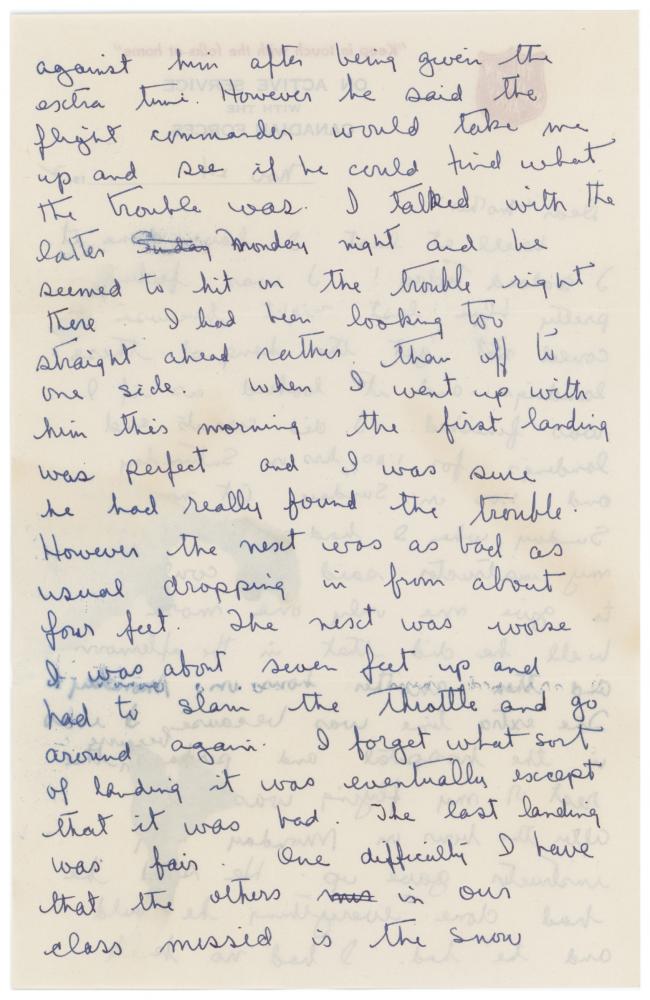 against him after being given the
extra time. However he said the
flight commander would take me
up and see if he could find what
the trouble was. I talked with the
latter Sunday Monday night and he
seemed to hit on the trouble right
there. I had been looking too
straight ahead rather than off to
one side. When I went up with
him this morning the first landing
was perfect and I was sure
he had really found the trouble.
However the next was as bad as
usual dropping in from about
four feet. The next was worse
I was about seven feet up and
had to slam the throttle and go
around again. I forget what sort
of landing it was eventually except
that it was bad. The last landing
was fair. One difficulty I have
that the others in our
class missed is the snow